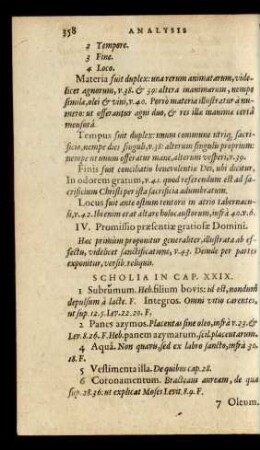 358 ANALYSIS
2 Tempore.
3 Fine.
4 Loco.
Materia fuit duplex: una rerum animatarum, vide-
licet agnorum, v.38. & 39: altera inanimarum, nempe
similæ, olei & vini, v.40. Porrò materia illustratur à nu-
mero: ut offerantur agni duo, & res illa inanimæ certâ
mensurâ.
Tempus fuit duplex: unum commune utriq; sacrifi-
cio, nempe dies singuli, v.38: alterum singulis proprium:
nempe ut unum offeratur mane, alterum vesperi, v.39.
Finis fuit conciliatio benevolentiæ Dei, ubi dicitur,
In odorem gratum, v.41. quod referendum est ad sa-
crificium Christi per ista sacrificia adumbratum.
Locus fuit ante ostium tentorii in atrio tabernacu-
li, v.42. Ibi enim erat altare holocaustorum, infrà 40.v.6.
IV. Promissio præsentiæ gratiosæ Domini.
Hæc primùm proponitur generaliter, illustrata ab ef-
fectu, videlicet sanctificatione, v.43. Deinde per partes
exponitur, versib. reliquis.
SCHOLIA IN CAP. XXIX.
1 Subrumum. Heb. filium bovis: id est, nondum
depulsum à lacte. F. Integros. Omni vitio carentes,
ut sup.12.5. Lev.22.20. F.
2 Panes azymos. Placentas sine oleo, infrà v.23. &
Lev.8.26. F. Heb. panem azymarum, scil. placentarum.
4 Aquâ. Non quavis, sed ex labro sancto, infrà 30.
18. F.
5 Vestimenta illa. De quibus cap.28.
6 Coronamentum. Bracteam auream, de qua
sup.28.36: ut explicat Moses Levit.8.9. F.
7 Oleum.